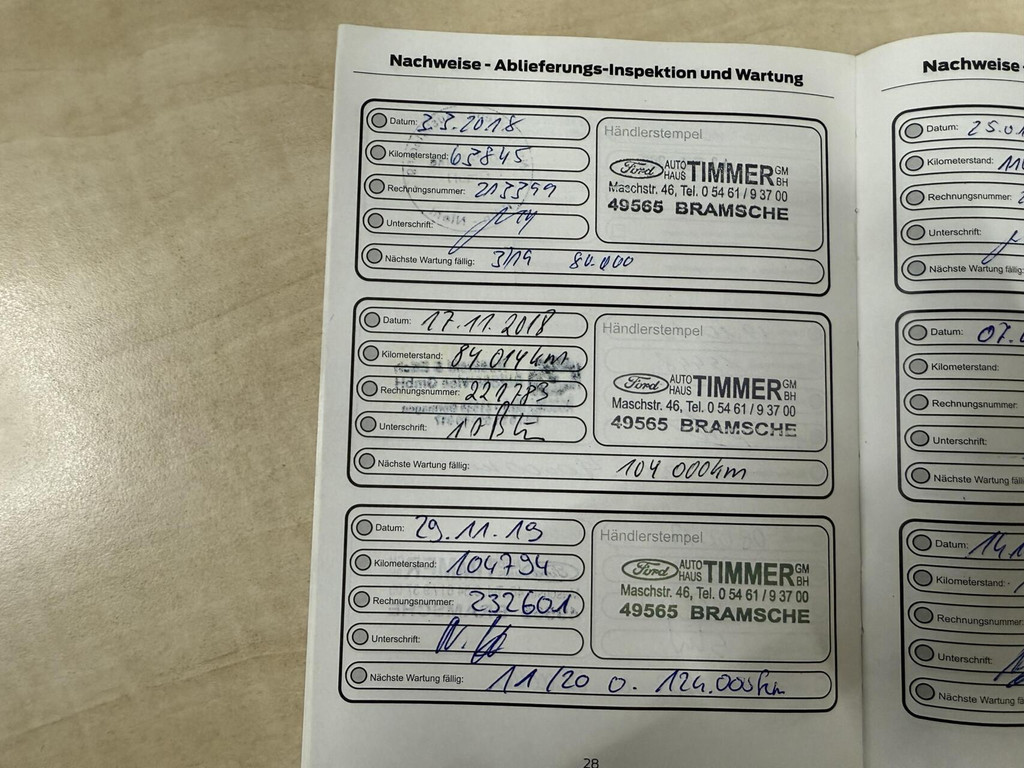 Nachweise - Ablieferungs-Inspektion und Wartung
Datum: 3.3.2018
Kilometerstand: 63845
Rechnungsnummer: 213399
Unterschrift:
Nächste Wartung fällig: 3/19 80.000
Händlerstempel
Ford AUTO HAUS TIMMER GM BH
Maschstr. 46, Tel. 0 54 61 / 9 37 00
49565 BRAMSCHE
Datum: 17.11.2018
Kilometerstand: 84 014 km
Rechnungsnummer: 221783
Unterschrift:
Nächste Wartung fällig: 104 000 km
Händlerstempel
Ford AUTO HAUS TIMMER GM BH
Maschstr. 46, Tel. 0 54 61 / 9 37 00
49565 BRAMSCHE
Datum: 29.11.19
Kilometerstand: 104794
Rechnungsnummer: 232601
Unterschrift:
Nächste Wartung fällig: 11/20 o. 124.000 km
Händlerstempel
Ford AUTO HAUS TIMMER GM BH
Maschstr. 46, Tel. 0 54 61 / 9 37 00
49565 BRAMSCHE
28
Nachweise -
Datum: 25.0
Kilometerstand:
Rechnungsnummer:
Unterschrift:
Nächste Wartung fällig:
Datum: 07.
Kilometerstand:
Rechnungsnummer:
Unterschrift:
Nächste Wartung fälli
Datum: 14.1
Kilometerstand:
Rechnungsnummer:
Unterschrift:
Nächste Wartung fä